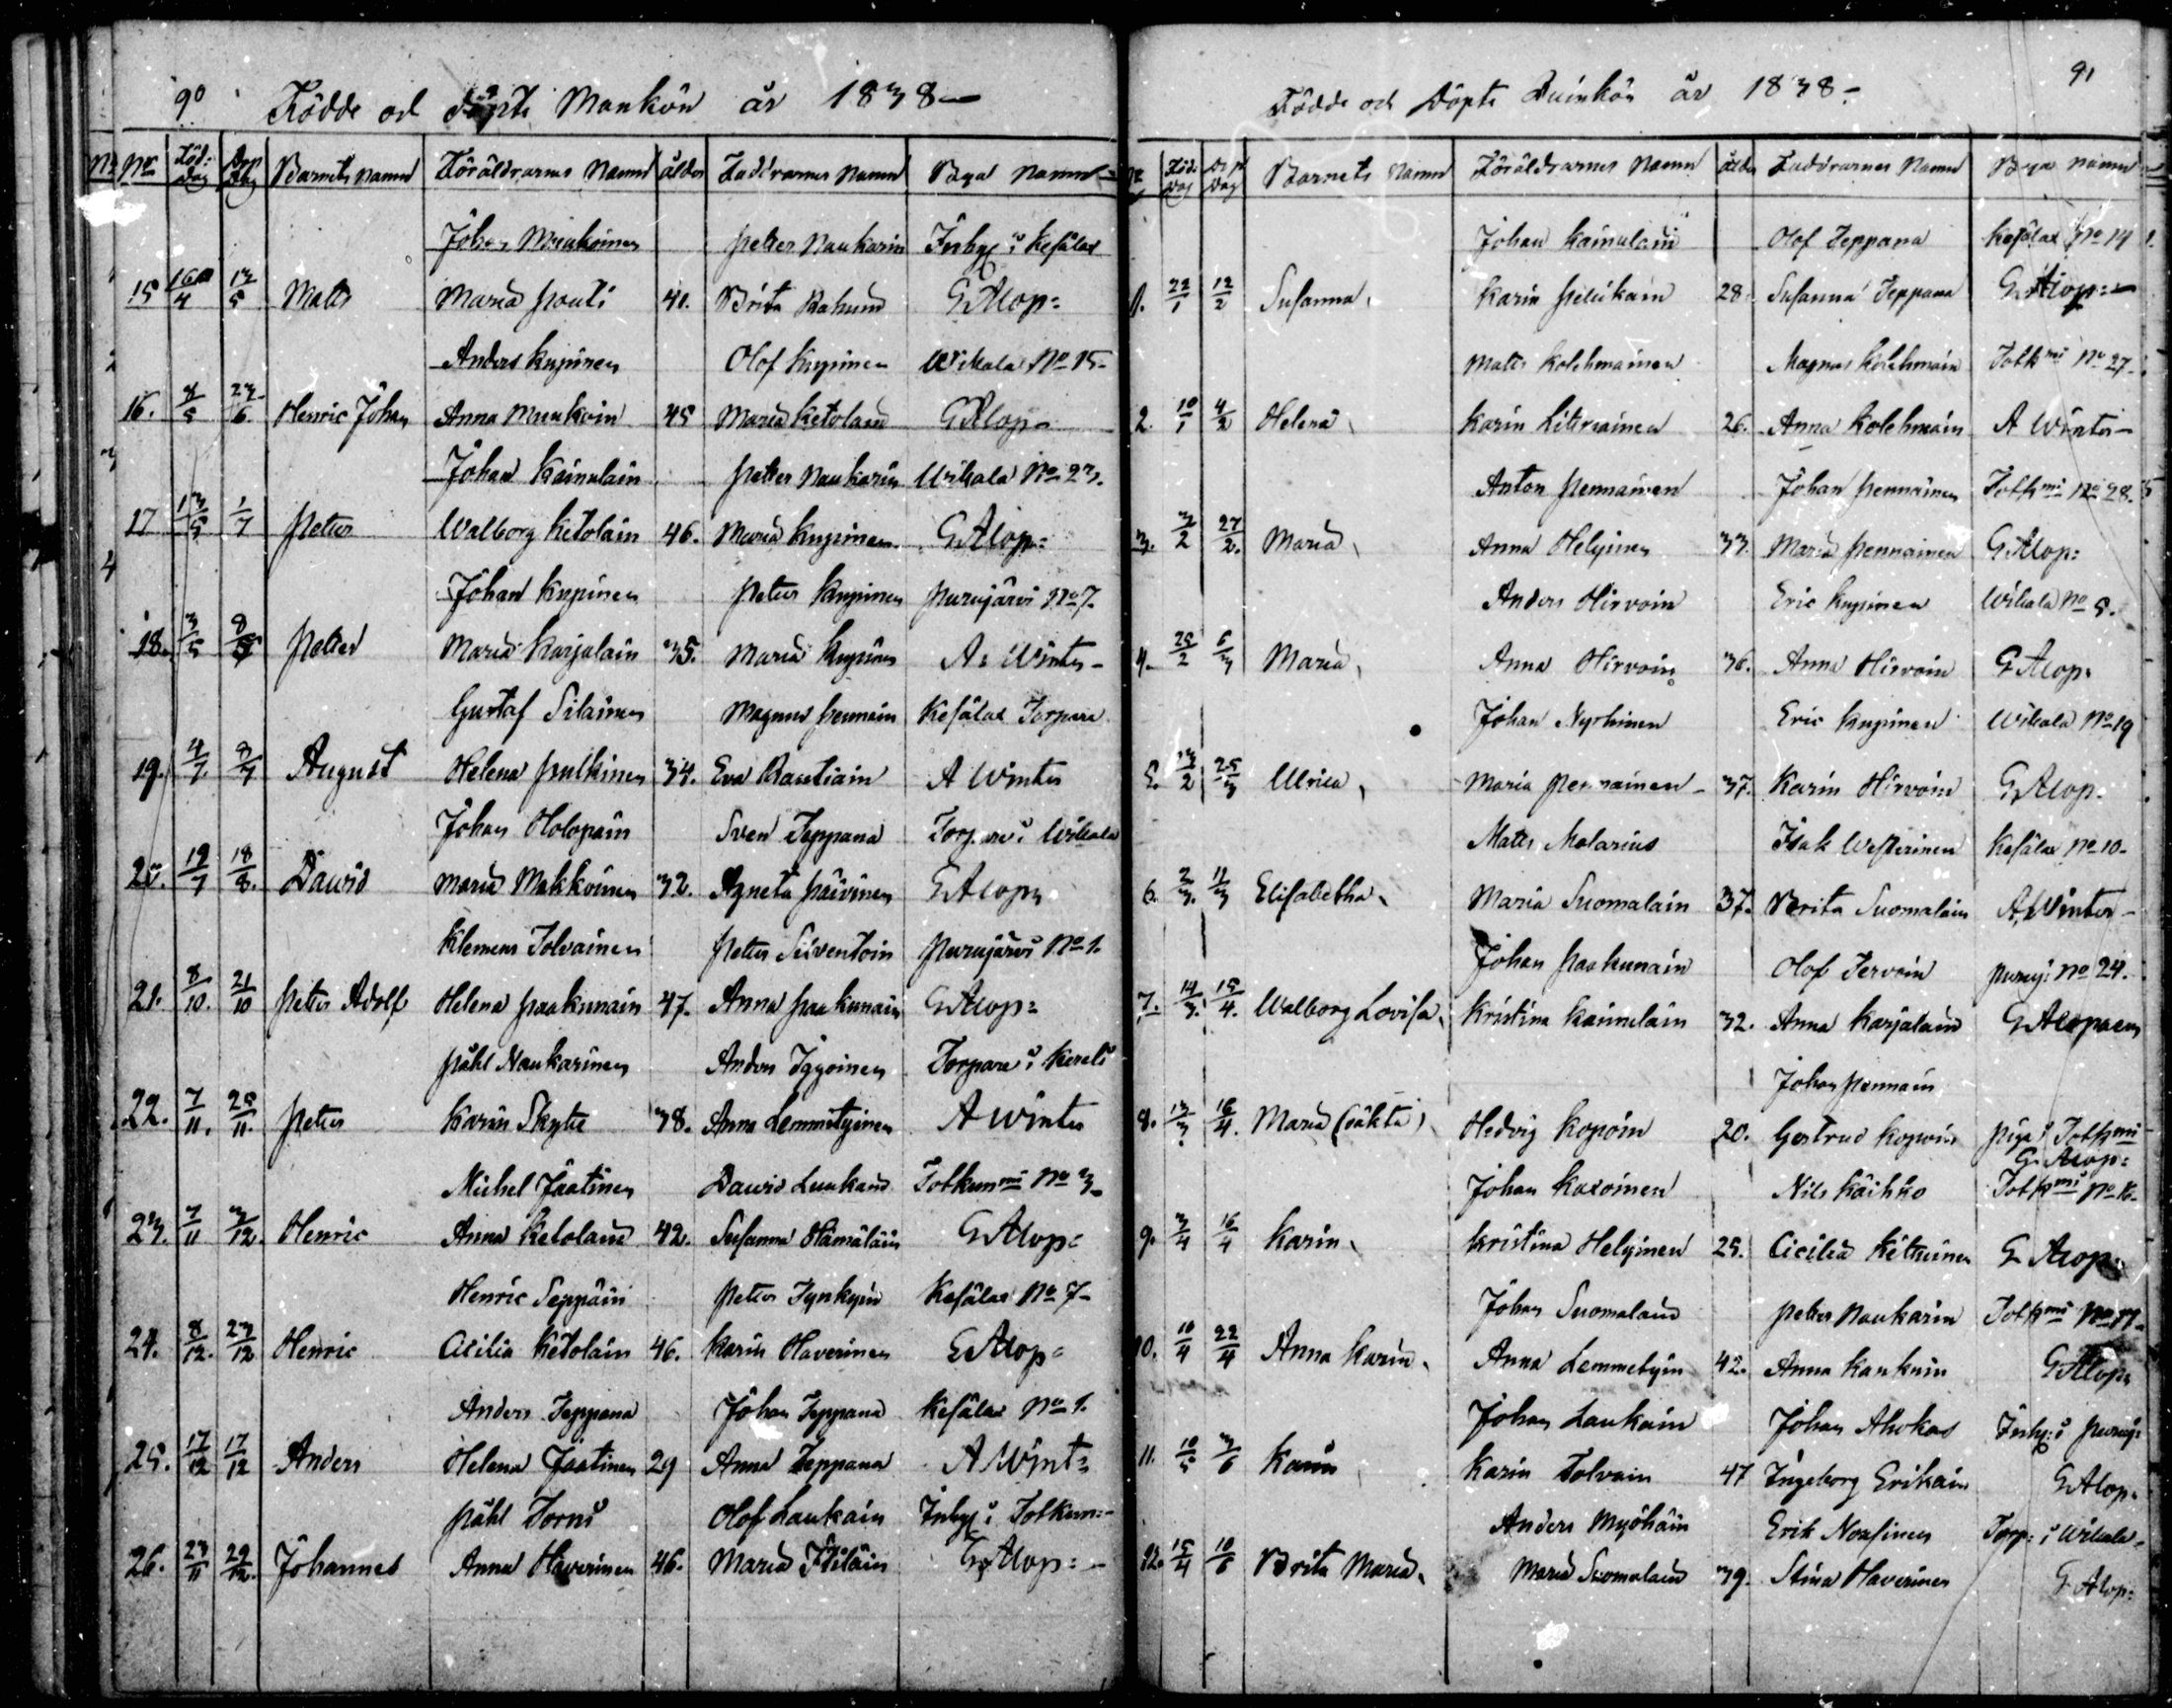 90 Födde och döpte Mankön år 1838
No Föd: dag Dop dag Barnets namn Föräldrarnes Namn ålder Faddrarnes Namn Byal namn
Johan Munkoinen Petter Naukarin Inhy: i Kesälax
15 4 13/5 Matts Maria Pouti 41. Brita G Alop:
Anders Kupinen Olof Kupinen Wikala No 15.
16. 8/5 6. Henric Johan Anna Munkoin 45 Maria Ketolain G Alop:
Johan Kainulain Petter Naukarin Wikala No 23.
17 13/5 1/7 Petter Walborg Ketolain 46. Maria Kupinen G Alop:
Johan Kupinen Petter Kupinen Purujärvi No 7.
18. 3/5 8 Petter Maria Karjalain 35. Maria Kupinen A. Winter
Gustaf Silainen Magnus Pennain Kesälax Torpare
19. 4/7. 8/7 August Helena Pulkinen 34. Eva Rautiain A Winter
Johan Holopain Sven Teppana Torpare i Wikala
20. 19/7 18/8. David Maria Makkoinen 32. Agneta Päivinen G Alop:
Klemens Tolvainen Petter Silventoin Purujärvi No 1.
21. 8/10. 21/10 Petter Adolf Helena Paakunain 47. Anna Paakunain G Alop:
Påhl Naukarinen Anders Torpare i Kerali
22. 7/11. 25/11. Petter Karin Skytte 38. Anna Lemmityinen A Winter
Michel Jaatinen David Laukain Totkunmi No 3
23. 7/11 3/12. Henric Anna Ketolain 42. Susanna Hämäläin G Alop:
Henric Seppäin Petter Tynkyin Kesälax No 7
24. 8/12. 23/12 Henric Cicilia Ketolain 46. Karin Haverinen G Alop:
Anders Teppana Johan Teppana Kesälax No 1.
25. 17/12 17/12 Anders Helena Jaatinen 29 Anna Teppana A Wint:
Påhl Torni Olof Laukain Inhy: i Totkun:
26. 23/11 29/12. Johannes Anna Haverinen 46. Maria G Alop:
91
Födde och Döpte Quinkön år 1838
No Föd: dag Dop dag Barnets Namn Föräldrarnes Namn ålder Faddrarnes Namn Byal namn
Johan Kainulain Olof Teppana Kesälax No 14
1. 22/1 12/2 Susanna, Karin Pelukain 28. Susanna Teppana G Alop:
Matts Kolehmainen Magnus Kolehmain Totkmi No 27
2. 10/1 4/2 Helena, Karin 26. Anna Kolehmain A Winter
Anton Pennainen Johan Pennainen Totkmi No 28.
3. 3/2 27/2. Maria, Anna Helyinen 33. Maria Pennainen G Alop:
Anders Hirvoin Eric Kupinen Wikala No 5.
4. 25/2 6/3 Maria, Anna Hirvoin 36. Anna Hirvoin G Alop:
Johan Nyrhinen Eric Kupinen Wikala No 19
5. 13/2 25/3 Ulrica, Maria Pennainen 37. Karin Hirvoin G Alop:
Matts Molarius Isak Westerinen Kesälax No 10
6. 2/3. 11/3 Elisabetha, Maria Suomalain 37. Brita Suomalain A Winter
Johan Paakunain Olof Tervoin Puruj: No 24.
7. 14/3. 15/4. Walborg Lovisa, Kristina Kainulain 32. Anna Karjalain G Alopaeus
Johan Pennain
8. 13/3 16/4. Maria (oäkta) Hedvig Kopoin 20. Gertrud Kopoin Piga i Totkmi
G. Alop:
Johan Kasoinen Nils Käihkö Totkmi No 16.
9. 3/4 16/4 Karin, Kristina Helyinen 25. Cicilia G Alop:
Johan Suomalain Petter Naukarin Totkmi No 17
10. 10/4 22/4 Anna Karin, Anna Lemmetyin 42. Anna Kankuin G Alop:
Johan Laukain Johan Ahokas Inhy: i Puruj:
11. 10/5 3/6 Karin Karin Tolvain 47 Ingeborg Erikain G Alop:
Anders Myöhäin Erik Nousinen Torp: i Wikala
12. 15/4 10/6 Brita Maria, Maria Suomalain 39. Stina Haverinen G Alop: